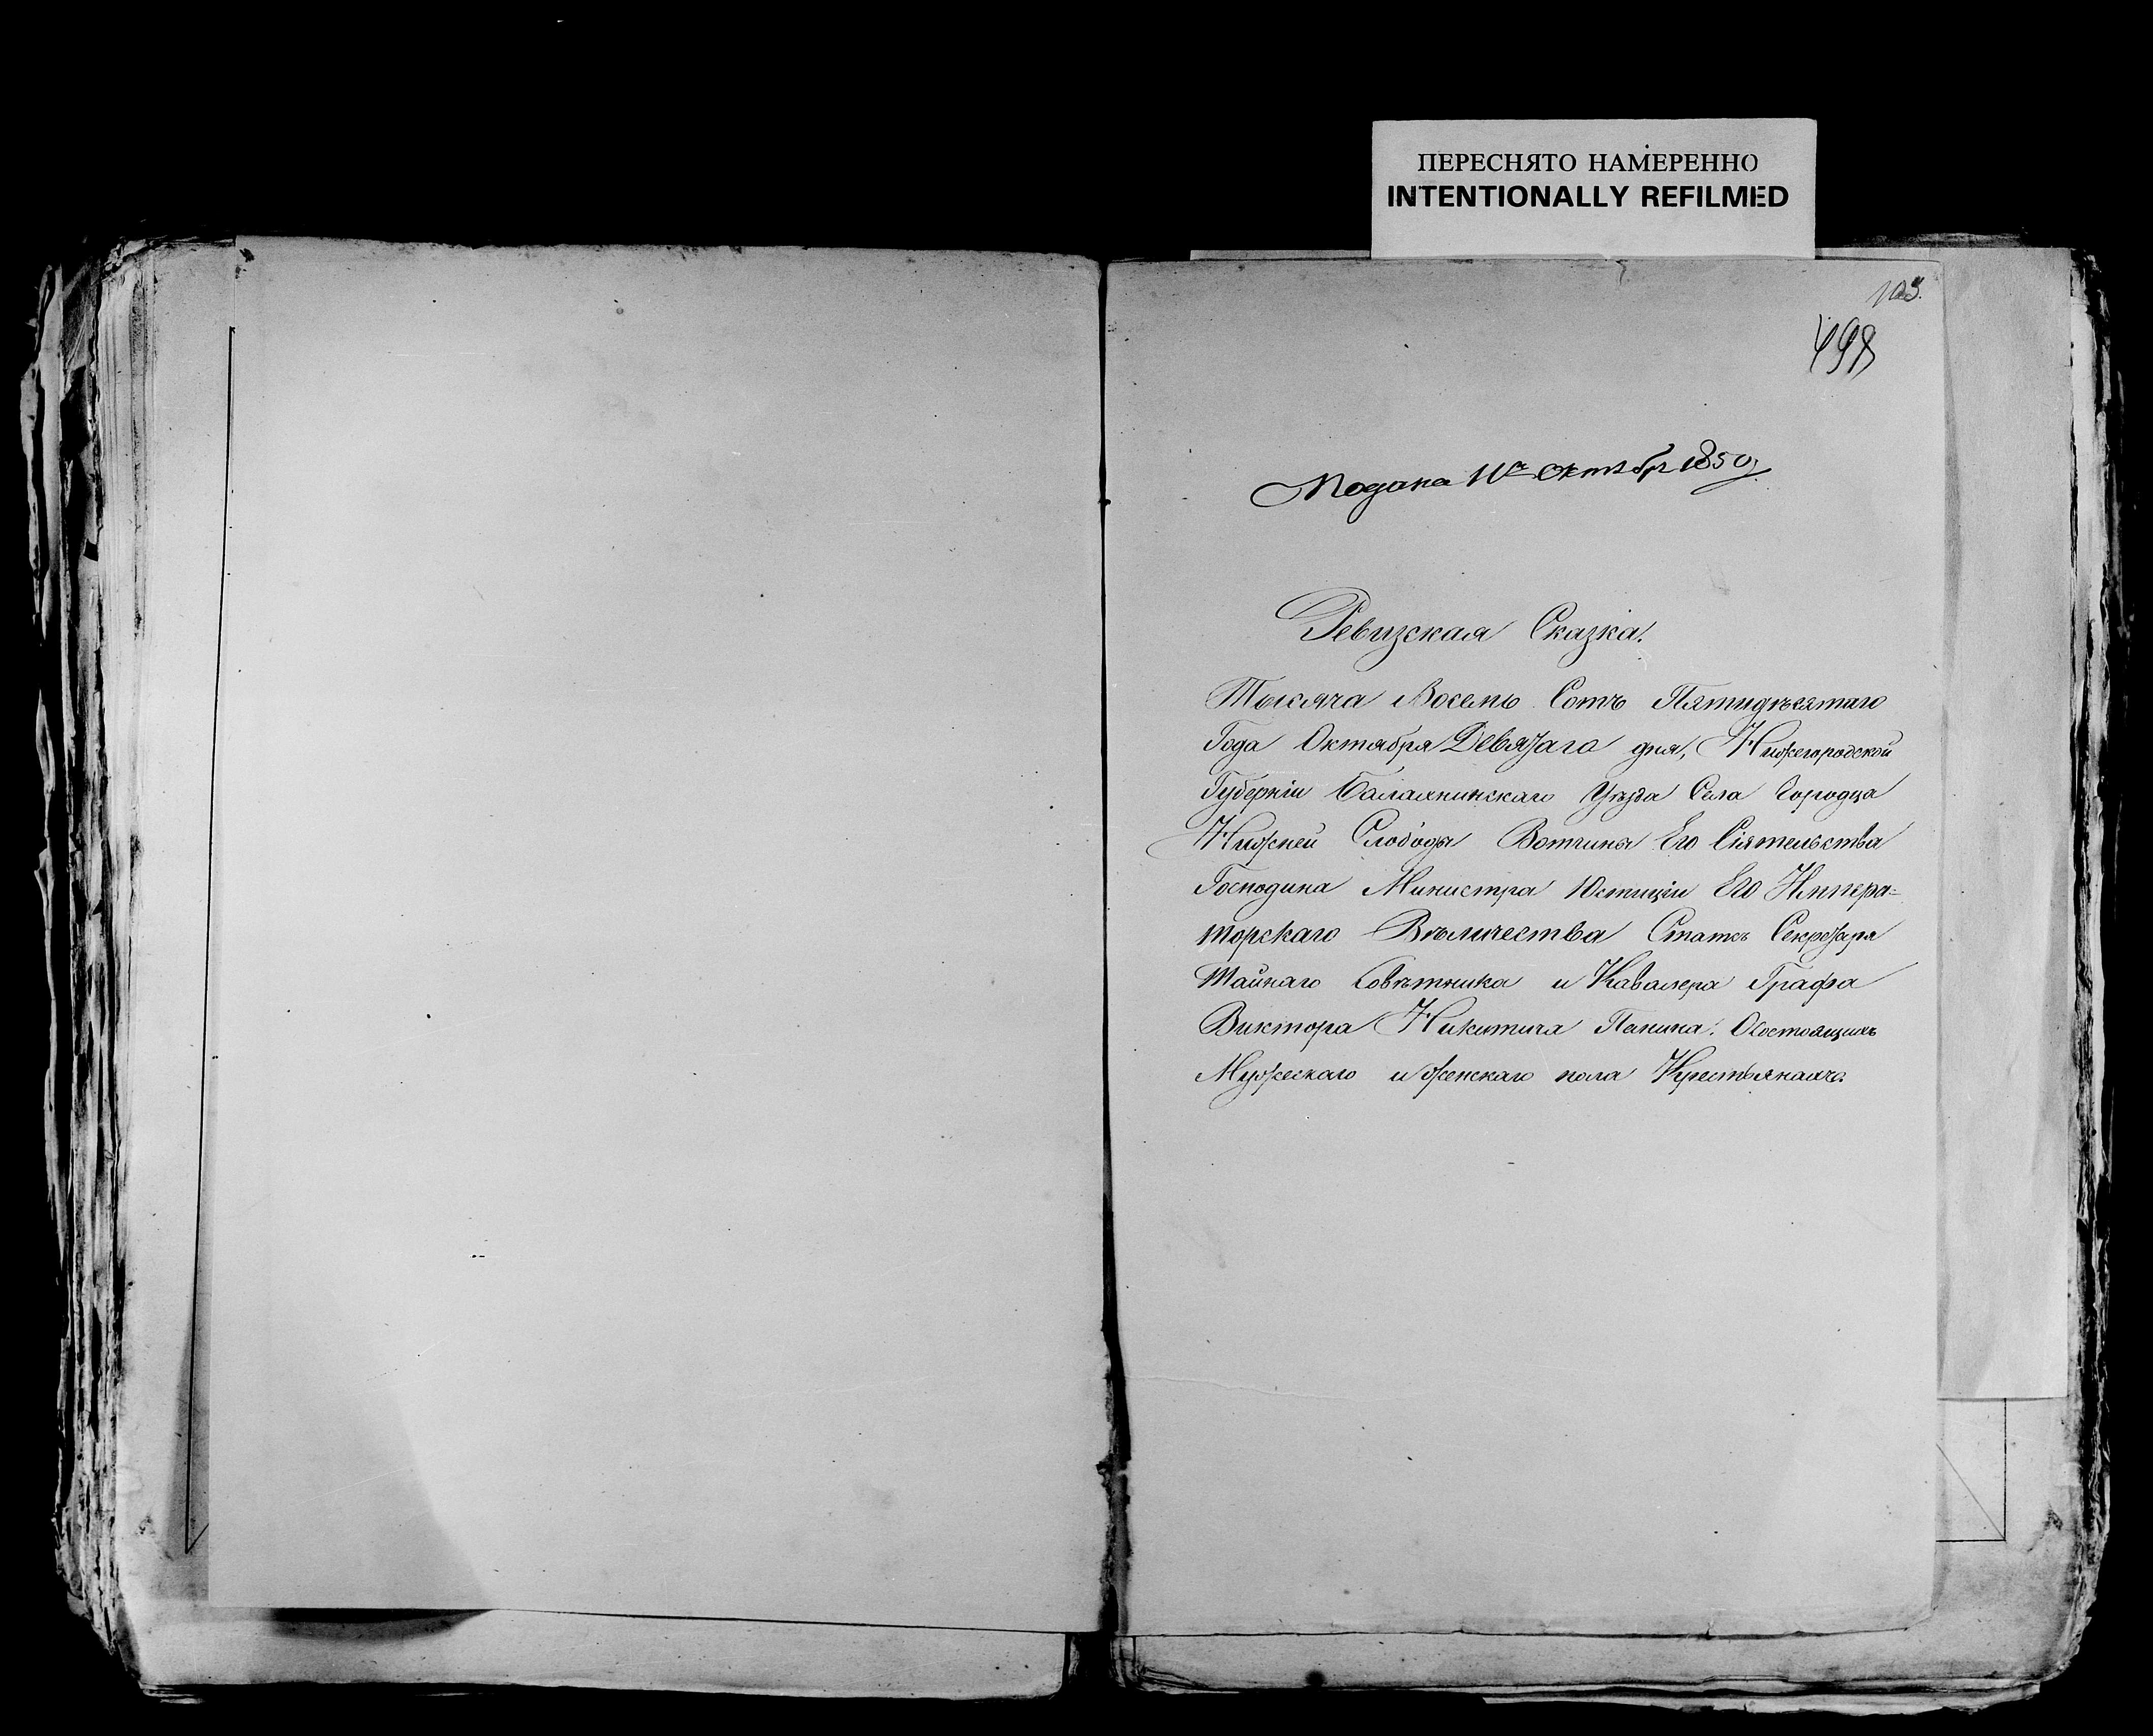 ПЕРЕСНЯТО НАМЕРЕННО
INTENTIONALLY REFILMED
103.
498
Подана 11го Октябр 1850 г.
Ревизская Сказка.
Тысяча Восемь Сотъ Пятидѣсятаго
Года Октября Девятаго дня, Нижегородской
Губерніи Балахнинскаго Уѣзда Села Городца
Нижней Слободы Вотчины Его Сіятельства
Господина Министра Юстиціи Его Импера=
торскаго Вѣличества Статсъ Секретаря
Тайнаго Совѣтника и Кавалера Графа
Виктора Никитича Панина. О состоящихъ
Мужескаго и женскаго пола Крестьянахъ